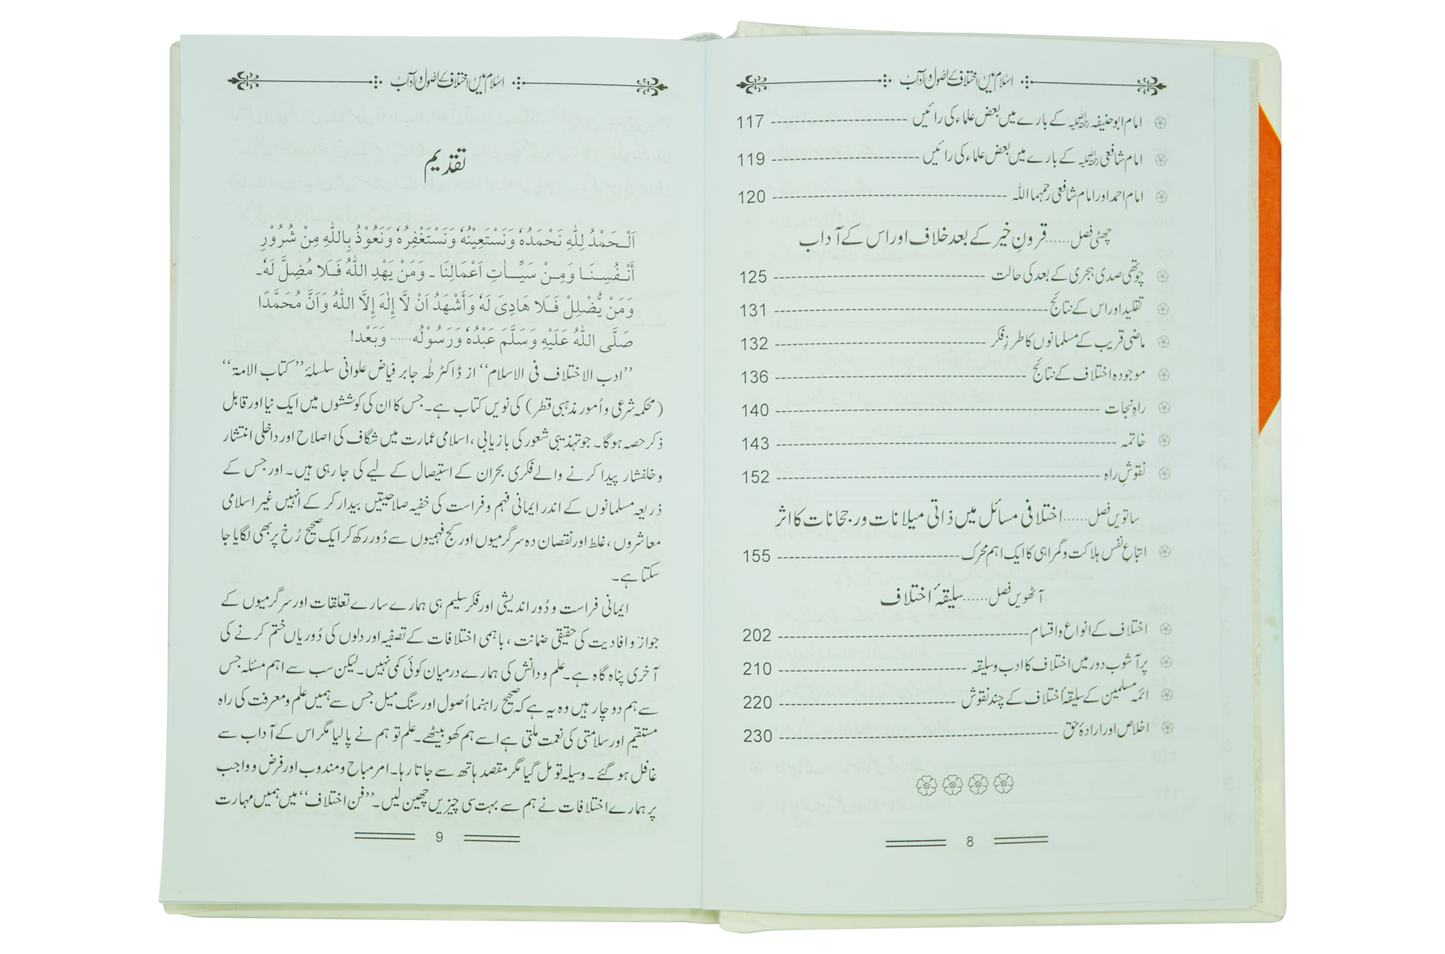 اسلام میں اختلاف کے اصول و آداب
امام ابوحنیفہ رحمۃ اللہ علیہ کے بارے میں بعض علماء کی رائیں ---------- 117
امام شافعی رحمۃ اللہ علیہ کے بارے میں بعض علماء کی رائیں ---------- 119
امام احمد اور امام شافعی رحمہما اللہ ---------- 120
چھٹی فصل......قرونِ خیر کے بعد خلاف اور اس کے آداب
چوتھی صدی ہجری کے بعد کی حالت ---------- 125
تقلید اور اس کے نتائج ---------- 131
ماضی قریب کے مسلمانوں کا طرزِ فکر ---------- 132
موجودہ اختلاف کے نتائج ---------- 136
راہِ نجات ---------- 140
خاتمہ ---------- 143
نقوشِ راہ ---------- 152
ساتویں فصل......اختلافی مسائل میں ذاتی میلانات ورجحانات کا اثر
اتباعِ نفس ہلاکت و گمراہی کا ایک اہم محرک ---------- 155
آٹھویں فصل......سلیقۂ اختلاف
اختلاف کے انواع و اقسام ---------- 202
پرآشوب دور میں اختلاف کا ادب و سلیقہ ---------- 210
ائمہ مسلمین کے سلیقۂ اختلاف کے چند نقوش ---------- 220
اخلاص اور ارادۂ حق ---------- 230
8
اسلام میں اختلاف کے اصول و آداب
تقدیم
اَلْحَمْدُ لِلّٰهِ نَحْمَدُهٗ وَنَسْتَعِيْنُهٗ وَنَسْتَغْفِرُهٗ وَنَعُوْذُ بِاللّٰهِ مِنْ شُرُوْرِ
اَنْفُسِنَا وَمِنْ سَيِّاٰتِ اَعْمَالِنَا ۔ وَمَنْ يَهْدِ اللّٰهُ فَلَا مُضِلَّ لَهٗ۔
وَمَنْ يُّضْلِلْ فَلَا هَادِىَ لَهٗ وَاَشْهَدُ اَنْ لَّا اِلٰهَ اِلَّا اللّٰهُ وَاَنَّ مُحَمَّدًا
صَلَّى اللّٰهُ عَلَيْهِ وَسَلَّمَ عَبْدُهٗ وَرَسُوْلُهٗ...... وَبَعْد!
’’ادب الاختلاف فی الاسلام‘‘ از ڈاکٹر طٰہ جابر فیاض علوانی سلسلۂ ’’کتاب الامۃ‘‘
(محکمہ شرعی و اُمور مذہبی قطر) کی نویں کتاب ہے۔ جس کا ان کی کوششوں میں ایک نیا اور قابل
ذکر حصہ ہوگا۔ جو تہذیبی شعور کی بازیابی، اسلامی عمارت میں شگاف کی اصلاح اور داخلی انتشار
و خلفشار پیدا کرنے والے فکری بحران کے استیصال کے لیے کی جا رہی ہیں۔ اور جس کے
ذریعہ مسلمانوں کے اندر ایمانی فہم و فراست کی خفیہ صلاحیتیں بیدار کر کے انہیں غیر اسلامی
معاشروں، غلط اور نقصان دہ سرگرمیوں اور کج فہمیوں سے دُور رکھ کر ایک صحیح رُخ پر بھی لگایا جا
سکتا ہے۔
ایمانی فراست و دُور اندیشی اور فکر سلیم ہی ہمارے سارے تعلقات اور سرگرمیوں کے
جواز و افادیت کی حقیقی ضمانت، باہمی اختلافات کے تصفیہ اور دلوں کی دُوریاں ختم کرنے کی
آخری پناہ گاہ ہے۔ علم و دانش کی ہمارے درمیان کوئی کمی نہیں۔ لیکن سب سے اہم مسئلہ جس
سے ہم دوچار ہیں وہ یہ ہے کہ صحیح راہنما اُصول اور سنگ میل جس سے ہمیں علم و معرفت کی راہ
مستقیم اور سلامتی کی نعمت ملتی ہے اسے ہم کھو بیٹھے۔ علم تو ہم نے پا لیا مگر اس کے آداب سے
غافل ہو گئے۔ وسیلہ تو مل گیا مگر مقصد ہاتھ سے جاتا رہا۔ امر مباح و مندوب اور فرض و واجب
پر ہمارے اختلافات نے ہم سے بہت سی چیزیں چھین لیں۔ ’’فن اختلاف‘‘ میں ہمیں مہارت
9